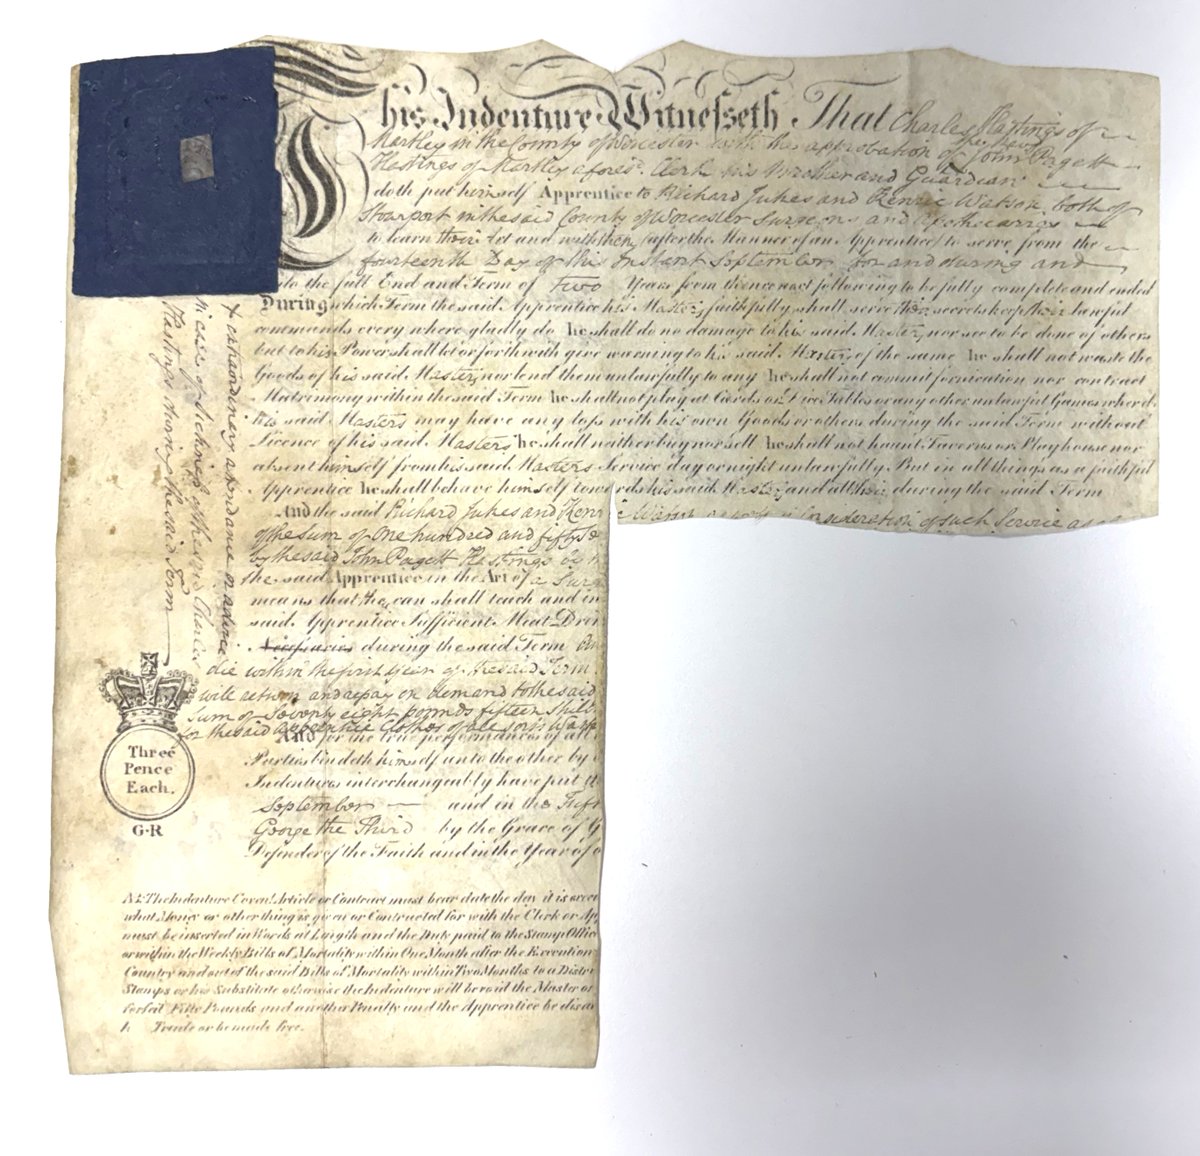 This Indenture Witnesseth That Charles Hastings of
Martley in the County of Worcester with the approbation of the Revd John Pagett
Hastings of Martley aforesd. Clerk his Brother and Guardian
doth put himself Apprentice to Richard Jukes and Kenric Watson both of
Stourport in the said County of Worcester Surgeons and Apothecarys
to learn their Art and with them (after the Manner of an Apprentice) to serve from the
fourteenth Day of this Instant September for and during and
unto the full End and Term of two Years from thence next following to be fully complete and ended
During which Term the said Apprentice his Masters faithfully shall serve their secrets keep their lawful
commands every where gladly do he shall do no damage to his said Masters nor see to be done of others
but to his Power shall let or forthwith give warning to his said Masters of the same he shall not waste the
Goods of his said Masters nor lend them unlawfully to any he shall not commit fornication nor contract
Matrimony within the said Term he shall not play at Cards or Dice Tables or any other unlawful Games whereby
his said Masters may have any loss with his own Goods or others during the said Term without
Licence of his said Masters he shall neither buy nor sell he shall not haunt Taverns or Playhouse nor
absent himself from his said Masters Service day or night unlawfully But in all things as a faithful
Apprentice he shall behave himself towards his said Masters and all their during the said Term
And the said Richard Jukes and Kenric Watson Consideration of such Service as
of the Sum of One hundred and fifty
by the said John Pagett Hastings
the said Apprentice in the Art of a Surg
means that they can shall teach and in
said Apprentice Sufficient Meat Drin
Necessaries during the said Term
die within the first Year of the said Term
will return and repay on demand to the said
Sum of Seventy eight pounds fifteen shill
for the said apprentice Clothes of all sorts
And for the true performances of all
Parties bindeth himself unto the other by
Indentures interchangeably have put
September and in the Fift
George the Third by the Grace of G
Defender of the Faith and in the Year of
X extraordinary attendance or advice
in case of Sickness of the said Charles
Hastings during the said Term
Three
Pence
Each.
G·R
The Indenture Covent. Article or Contract must bear date the day it is exec
what Money or other thing is given or Contracted for with the Clerk or App
must be inserted in Words at Length and the Duty paid to the Stamp Office
or within the Weekly Bills of Mortality within One Month after the Execution
Country and out of the said Bills of Mortality within Two Months to a Distri
Stamps or his Substitute otherwise the Indenture will be void the Master or
forfeit Fifty Pounds and another Penalty and the Apprentice be disa
Trade or be made free.